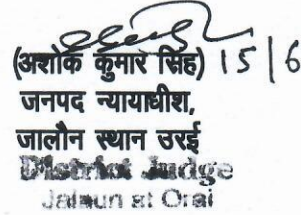 (अशोक कुमार सिंह) 15/6
जनपद न्यायाधीश,
जालौन स्थान उरई
District Judge
Jalaun at Orai